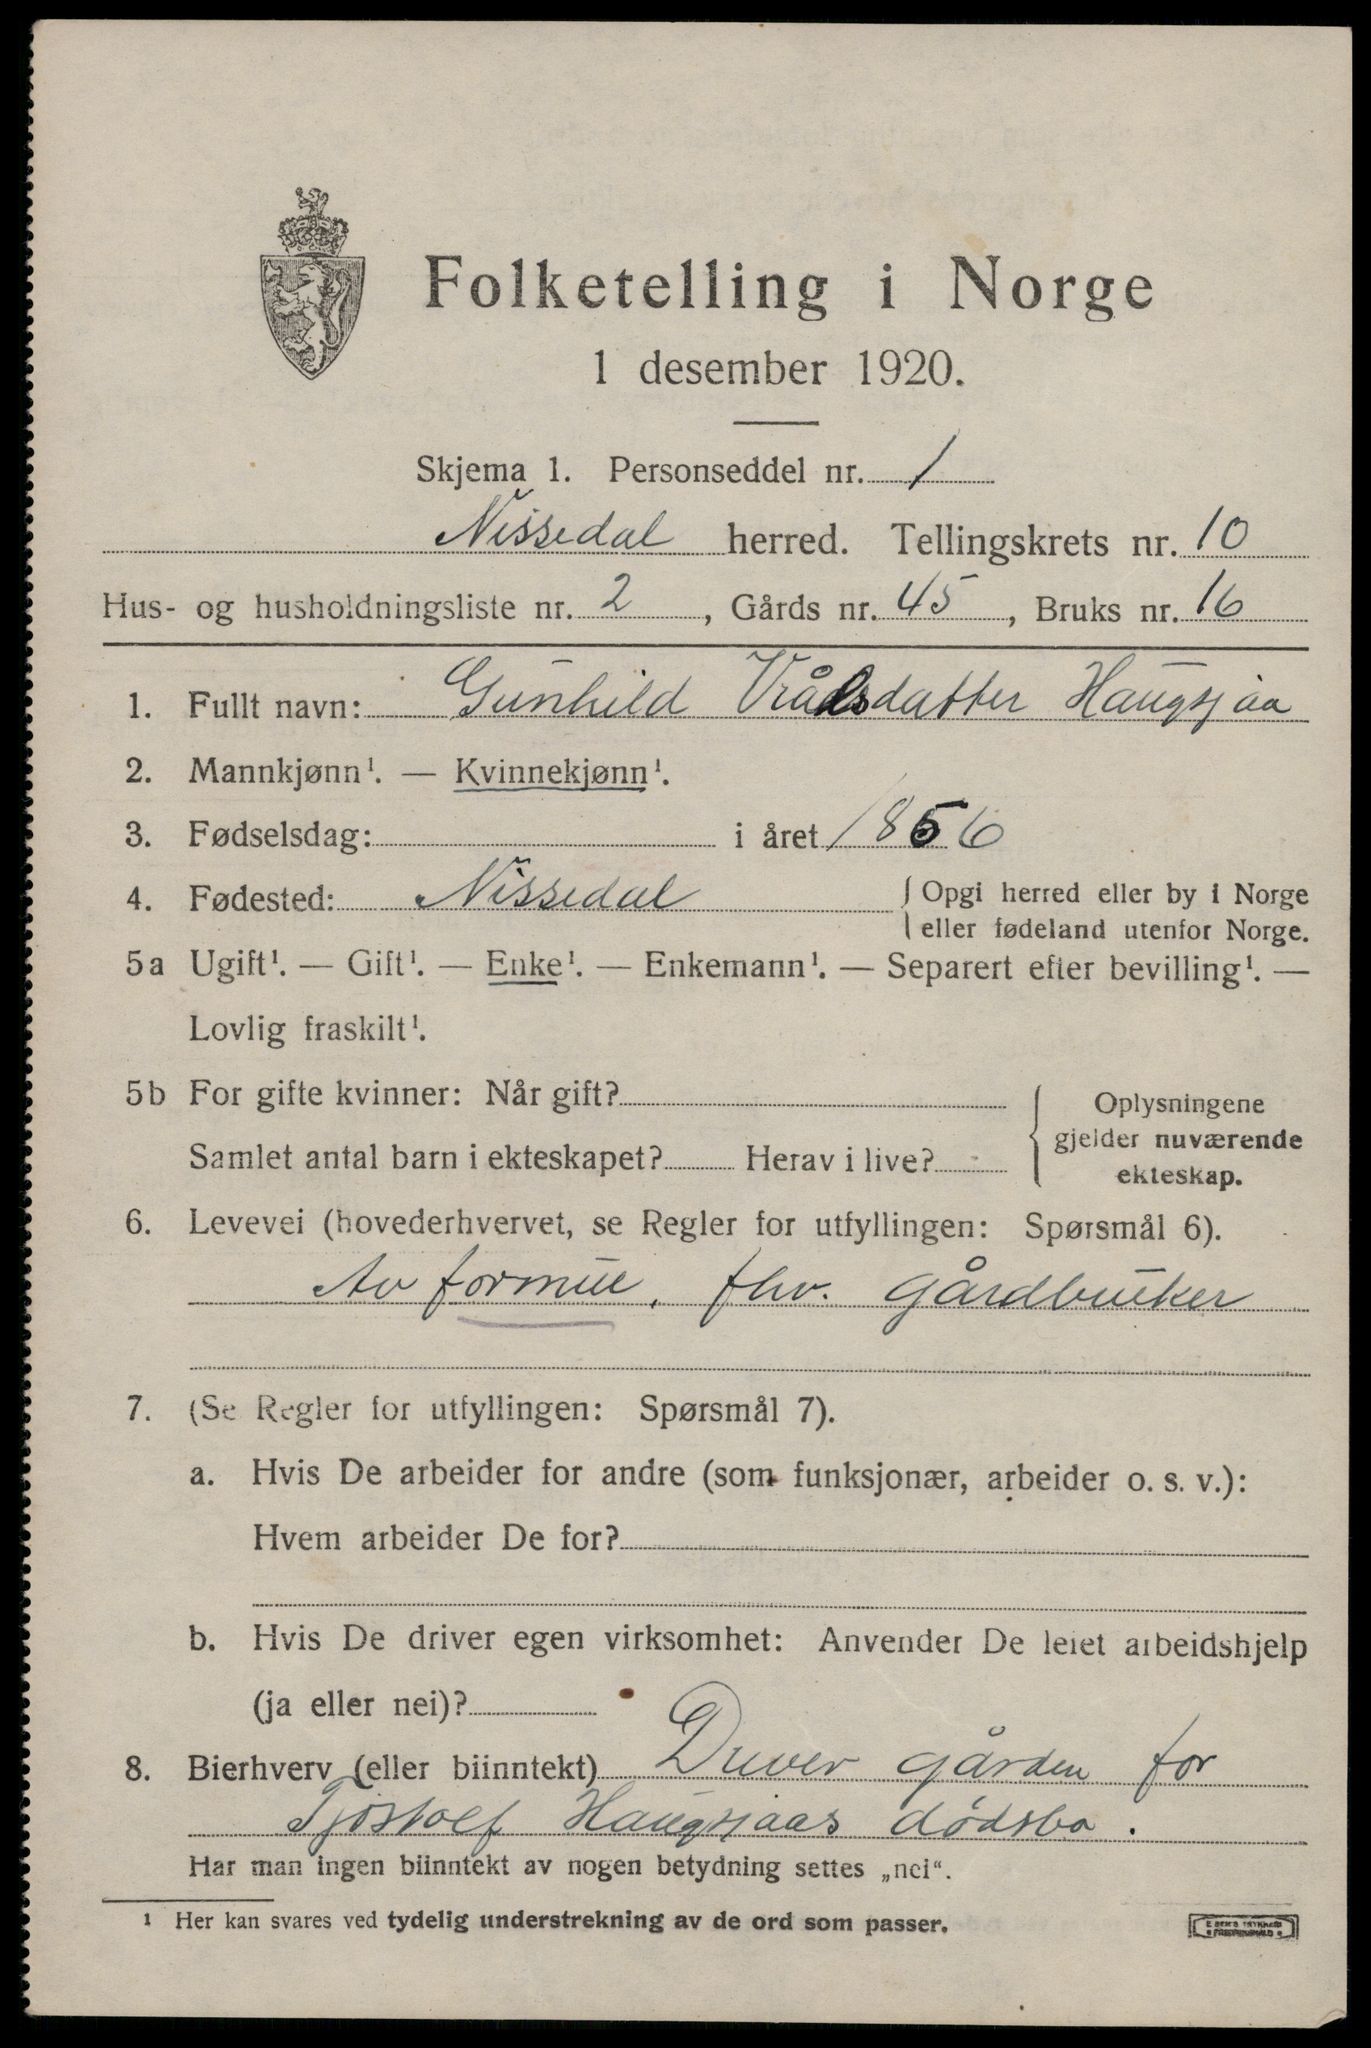 Folketelling i Norge
1 desember 1920.
Skjema 1. Personseddel nr. 1
Nissedal herred. Tellingskrets nr. 10
Hus- og husholdningsliste nr. 2, Gårds nr. 45, Bruks nr. 16
1. Fullt navn: Gunhild Vråsdatter Haugsjaa
2. Mannkjønn¹. — Kvinnekjønn¹.
3. Fødselsdag: i året 1856
4. Fødested: Nissedal { Opgi herred eller by i Norge
eller fødeland utenfor Norge.
5a Ugift¹. — Gift¹. — Enke¹. — Enkemann¹. — Separert efter bevilling¹. —
Lovlig fraskilt¹.
5b For gifte kvinner: Når gift? { Oplysningene
gjelder nuværende
Samlet antal barn i ekteskapet? Herav i live? ekteskap.
6. Levevei (hovederhvervet, se Regler for utfyllingen: Spørsmål 6).
Av formue. fhv. gårdbruker
7. (Se Regler for utfyllingen: Spørsmål 7).
a. Hvis De arbeider for andre (som funksjonær, arbeider o. s. v.):
Hvem arbeider De for?
b. Hvis De driver egen virksomhet: Anvender De leiet arbeidshjelp
(ja eller nei)?
8. Bierhverv (eller biinntekt) Driver gården for
Tjostolf Haugsjaas dødsbo.
Har man ingen biinntekt av nogen betydning settes „nei“.
¹ Her kan svares ved tydelig understrekning av de ord som passer.